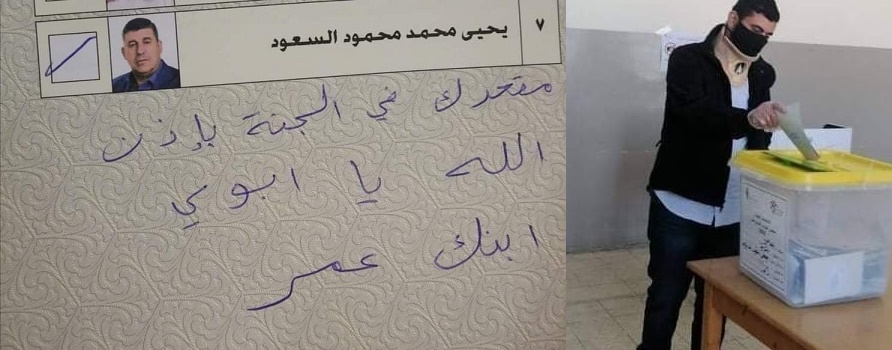 ٧
يحيى محمد محمود السعود
مقعدك في الجنة بإذن
الله يا ابوي
ابنك عمر